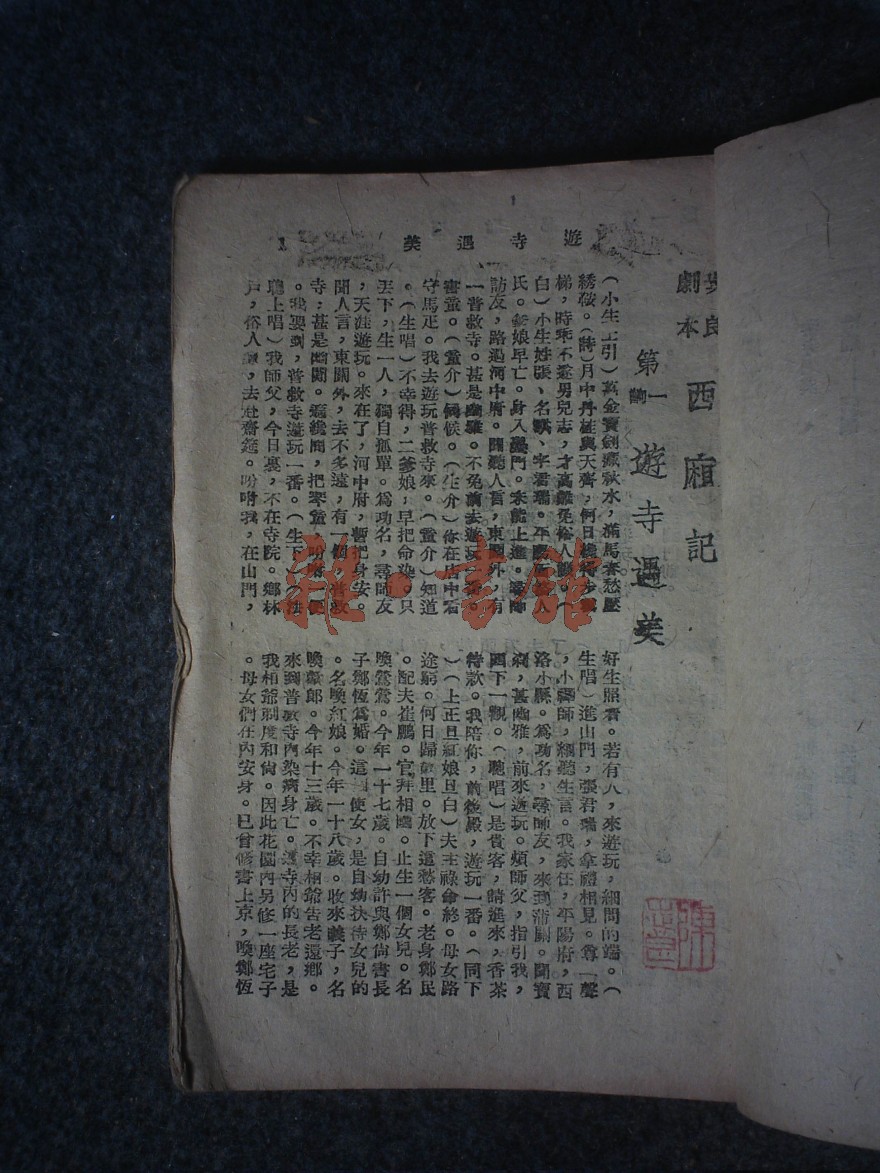 遊寺遇美　1
良
劇本
西廂記
第一齣
遊寺遇美
(小生上引)萬金寶劍藏秋水，滿馬春愁壓
綉鞍。(詩)月中丹桂與天齊，何日
梯，時乖不遂男兒志，才高難免俗人
白)小生姓張、名珙、字君瑞。
氏。爹娘早亡。身入黌門。未能上進。
訪友，路過河中府。聞聽人言，東關外，有
一普救寺。甚是幽雅。不免前去遊玩一番。
書童。(童介)伺候。(生介)你在店中看
守馬疋。我去遊玩普救寺來。(童介)知道
。(生唱)不幸得，二爹娘，早把命染。只
丟下，生一人，獨自孤單。爲功名，尋師友
，天涯遊玩。來在了，河中府，暫把身安。
聞人言，東關外，去不多遠，有一個，普救
寺，甚是幽閒。把琴童，吩咐
。我要到，普救寺遊玩一番。(生下)(法
聰上唱)我師父，今日裏，不在寺院。鄉林
戶，俗人家，去赴齋筵。吩咐我，在山門，
好生照看。若有人，來遊玩，細問的端。(
生唱)進山門，張君瑞，拿禮相見。尊一聲
，小禪師，細聽生言。我家住，平陽府，西
洛小縣。爲功名，尋師友，來到蒲關。聞寶
，甚幽雅，前來遊玩。煩師父，指引我，
下一觀。(聰唱)是貴客，請進來，香茶
待款。我陪你，前後殿，遊玩一番。(同下
)(上正旦紅娘旦白)夫主祿命終。母女路
途窮。何日歸故里。放下這愁客。老身鄭氏
。配夫崔鵬。官拜相國。止生一個女兒。名
喚鶯鶯。今年一十七歲。自幼許與鄭尙書長
子鄭恆爲婚。這個使女，是自幼扶待女兒的
。名喚紅娘。今年一十八歲。收來義子，名
喚歡郎。今年十三歲。不幸相爺告老還鄉。
來到普救寺內染病身亡。這寺內的長老，是
我相爺剃度和尙。因此花園內另修一座宅子
。母女們在內安身。已曾修書上京，喚鄭恆
雜·書館